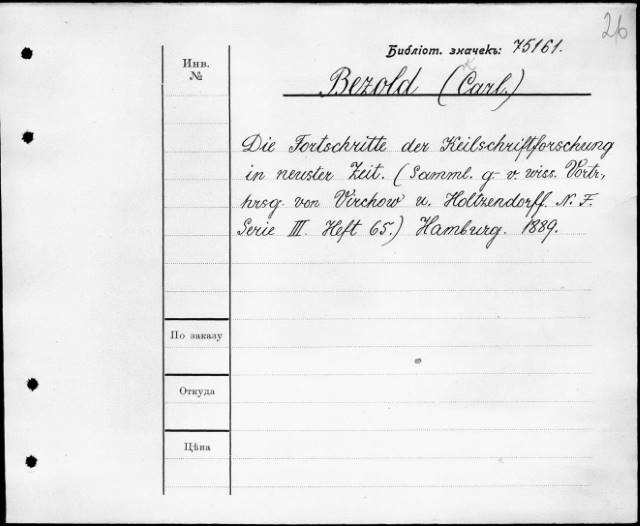 26
Библіот. значекъ: 75161.
Инв.
№
Bezold (Carl.)
Die Fortschritte der Keilschriftforschung
in neuster Zeit. (Samml. g. v. wiss. Vortr.,
hrsg. von Virchow u. Holtzendorff. N. F.
Serie III. Heft 65.) Hamburg. 1889.
По заказу
Откуда
Цѣна